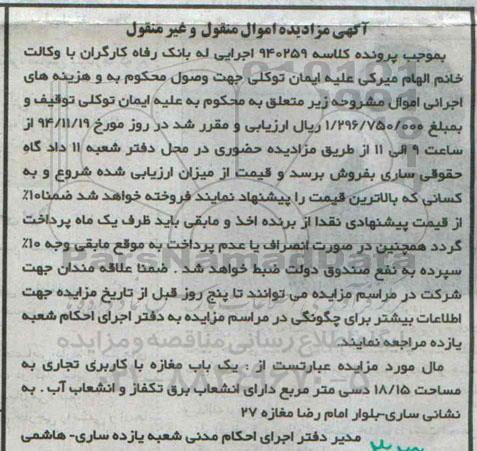 آگهی مزادیده اموال منقول و غیر منقول
بموجب پرونده کلاسه ۹۴۰۲۵۹ اجرایی له بانک رفاه کارگران با وکالت
خانم الهام میرکی علیه ایمان توکلی جهت وصول محکوم به و هزینه های
اجرائی اموال مشروحه زیر متعلق به محکوم به علیه ایمان توکلی توقیف و
بمبلغ ۱/۲۹۶/۷۵۰/۰۰۰ ریال ارزیابی و مقرر شد در روز مورخ ۹۴/۱۱/۱۹ از
ساعت ۹ الی ۱۱ از طریق مزادیده حضوری در محل دفتر شعبه ۱۱ داد گاه
حقوقی ساری بفروش برسد و قیمت از میزان ارزیابی شده شروع و به
کسانی که بالاترین قیمت را پیشنهاد نمایند فروخته خواهد شد ضمنا۱۰٪
از قیمت پیشنهادی نقدا از برنده اخذ و مابقی باید ظرف یک ماه پرداخت
گردد همچنین در صورت انصراف یا عدم پرداخت به موقع مابقی وجه ۱۰٪
سپرده به نفع صندوق دولت ضبط خواهد شد . ضمنا علاقه مندان جهت
شرکت در مراسم مزایده می توانند تا پنج روز قبل از تاریخ مزایده جهت
اطلاعات بیشتر برای چگونگی در مراسم مزایده به دفتر اجرای احکام شعبه
یازده مراجعه نمایند
مال مورد مزایده عبارتست از : یک باب مغازه با کاربری تجاری به
مساحت ۱۸/۱۵ دسی متر مربع دارای انشعاب برق تکفاز و انشعاب آب . به
نشانی ساری-بلوار امام رضا مغازه ۲۷
مدیر دفتر اجرای احکام مدنی شعبه یازده ساری- هاشمی
ParsNamadData